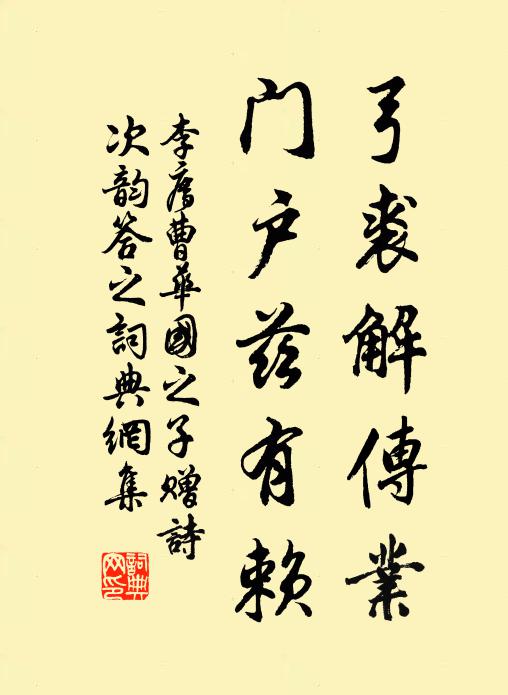 弓裘解傳業
門户茲有賴
李㢘曹華國之子贈詩
次韵答之詞典網集
詞典
网印